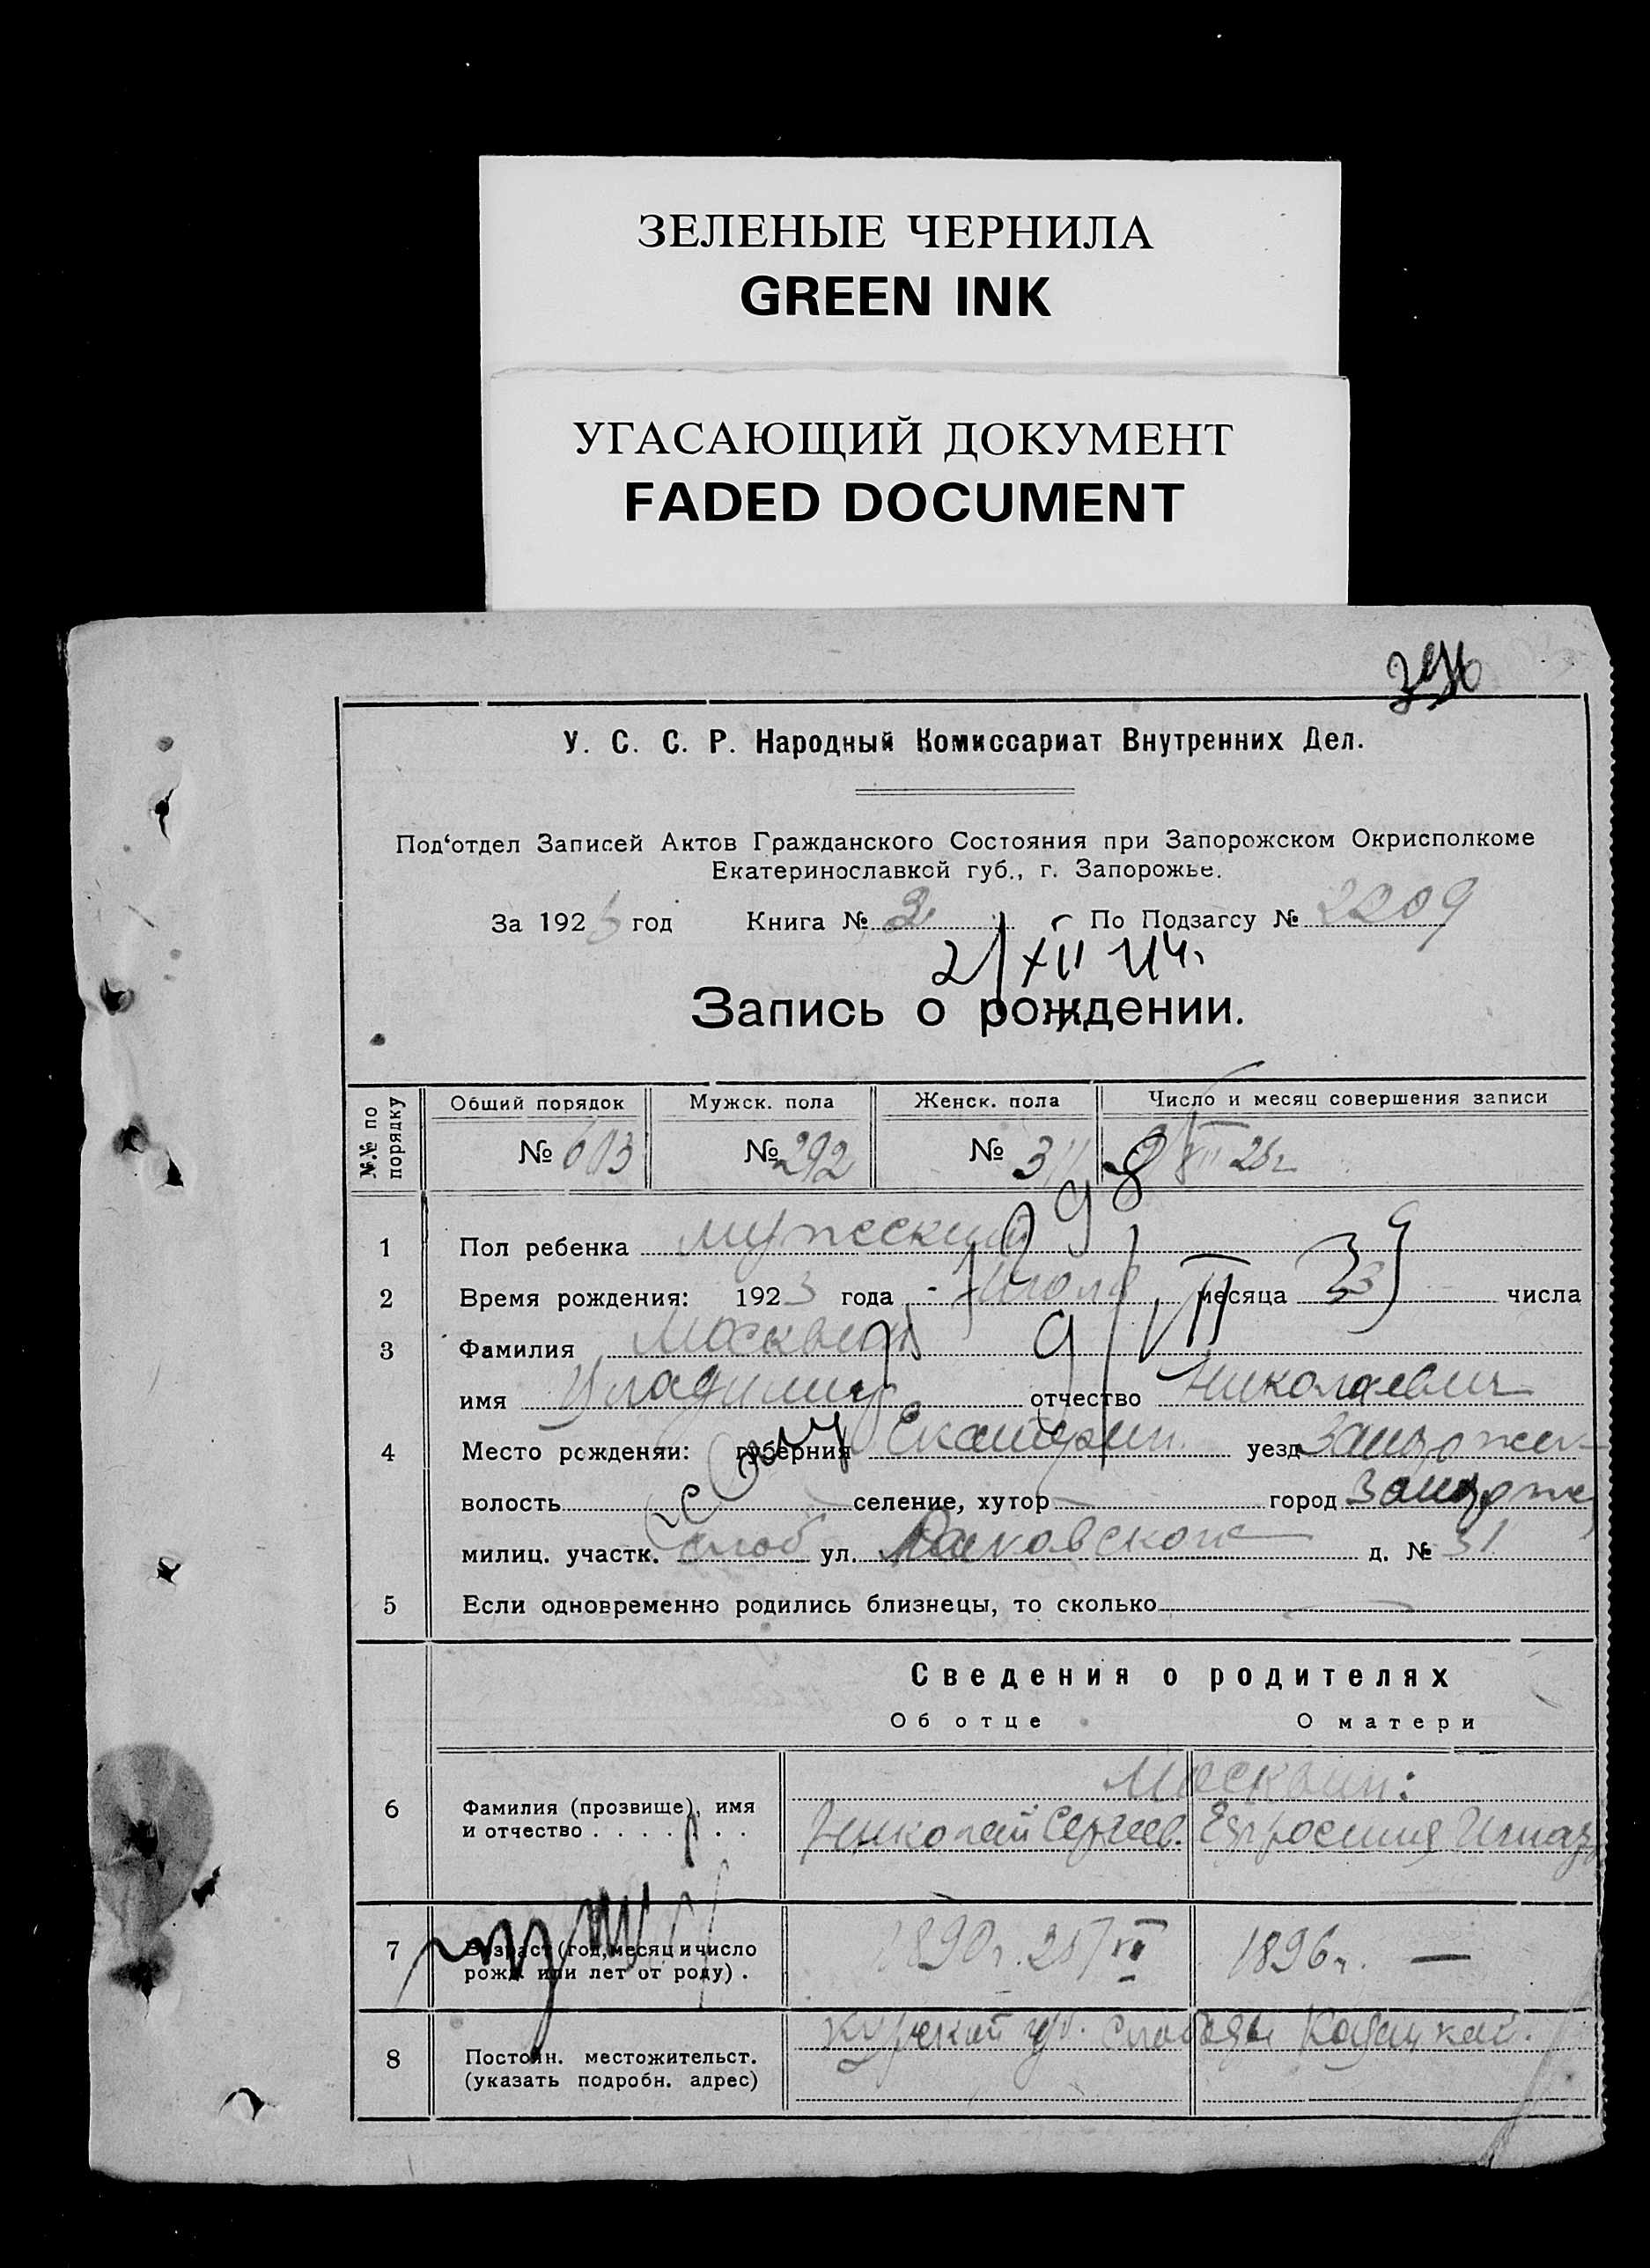 ЗЕЛЕНЫЕ ЧЕРНИЛА
GREEN INK
УГАСАЮЩИЙ ДОКУМЕНТ
FADED DOCUMENT
У. С. С. Р. Народный Комиссариат Внутренних Дел.
Под‘отдел Записей Актов Гражданского Состояния при Запорожском Окрисполкоме
Екатеринославкой губ., г. Запорожье.
За 1923 год Книга № 3 По Подзагсу № 2209
Запись о рождении.
№.№ по порядку
Общий порядок Мужск. пола Женск. пола Число и месяц совершения записи
№ 603 № 292 № 311
1 Пол ребенка мужеский
2 Время рождения: 1923 года Июля месяца числа
3 Фамилия Москвин
имя Владимир отчество Николаевич
4 Место рожденяи: губерния Екатерин. уезд Запорожск
волость селение, хутор город Запорожье
милиц. участк. слоб ул. Раковского д. № 31
5 Если одновременно родились близнецы, то сколько
Сведения о родителях
Об отце О матери
Москвин:
6 Фамилия (прозвище), имя
и отчество . . . . . . . Николай Сергеев. Ефросиния Игнат
7 Возраст (год, месяц и число
рожд. или лет от роду) . 1890 г. 1896 г. —
8 Постоян. местожительст.
(указать подробн. адрес)
Курской губ. Слободы Казацкой.